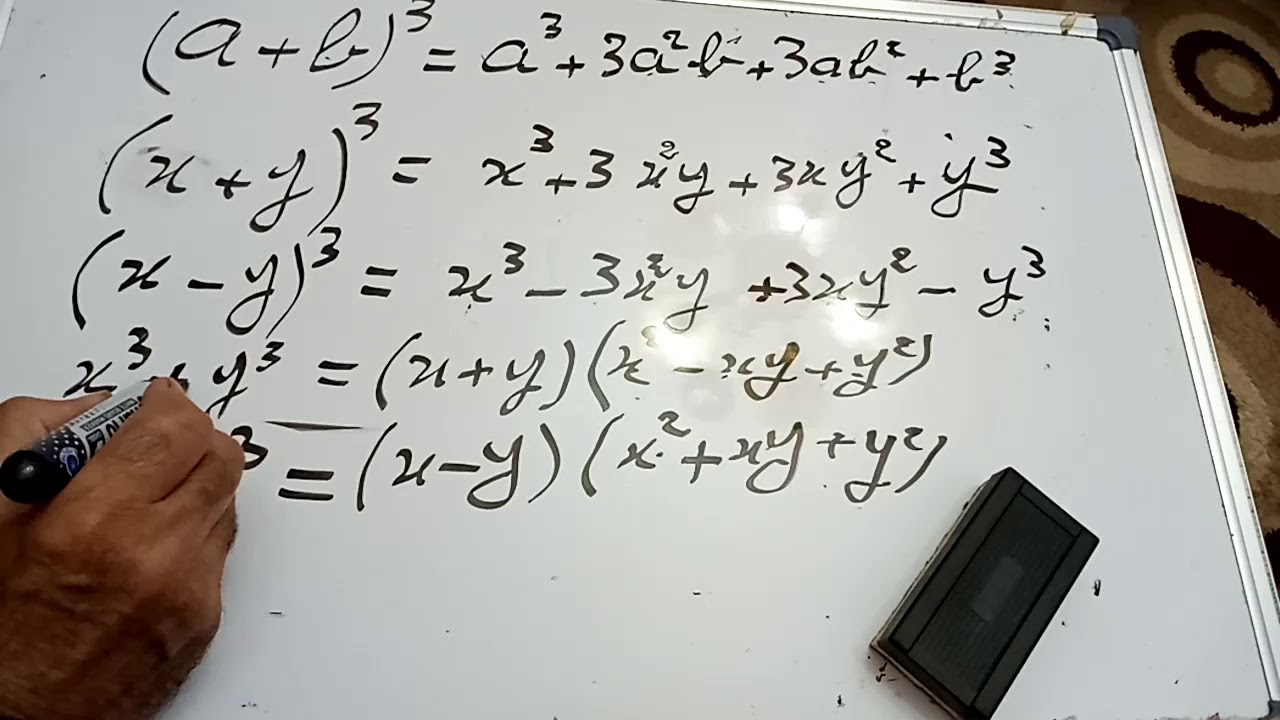 (a+b)³ = a³+3a²b+3ab²+b³
(x+y)³ = x³+3x²y+3xy²+y³
(x-y)³ = x³-3x²y+3xy²-y³
x³+y³ = (x+y)(x²-xy+y²)
³ = (x-y)(x²+xy+y²)